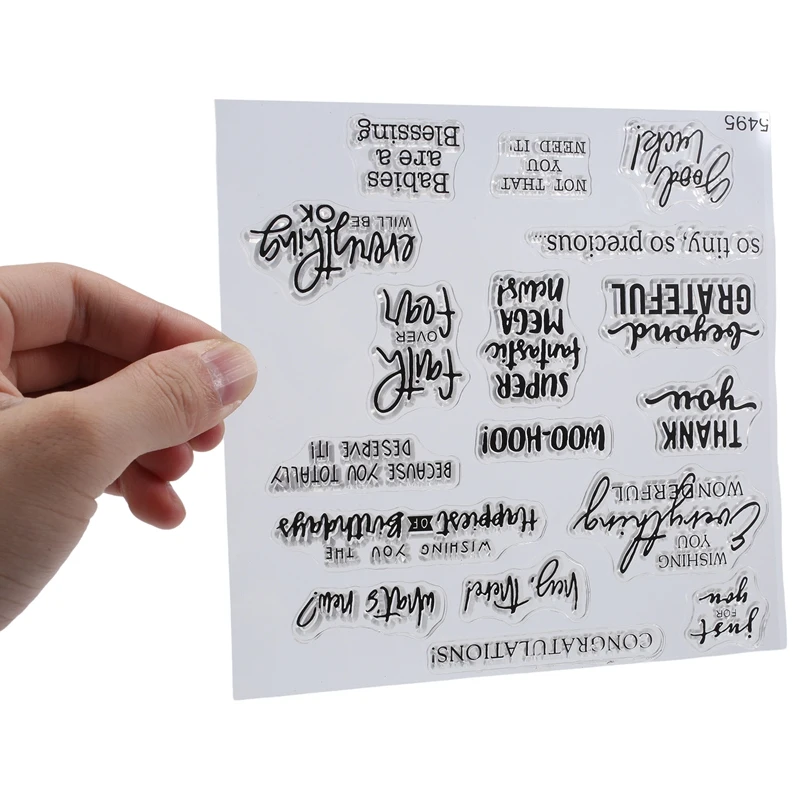 CONGRATULATIONS!
just
FOR
you
hey, there!
what's new?
WISHING
YOU
Everything
WONDERFUL
WISHING YOU THE
Happiest OF Birthdays
BECAUSE YOU TOTALLY
DESERVE IT!
THANK
you
WOO-HOO!
SUPER
fantastic
MEGA
news!
faith
OVER
fear
beyond
GRATEFUL
so tiny, so precious...
everything
WILL BE
OK
Good
luck!
NOT THAT
YOU
NEED IT!
Babies
are a
Blessing
5495